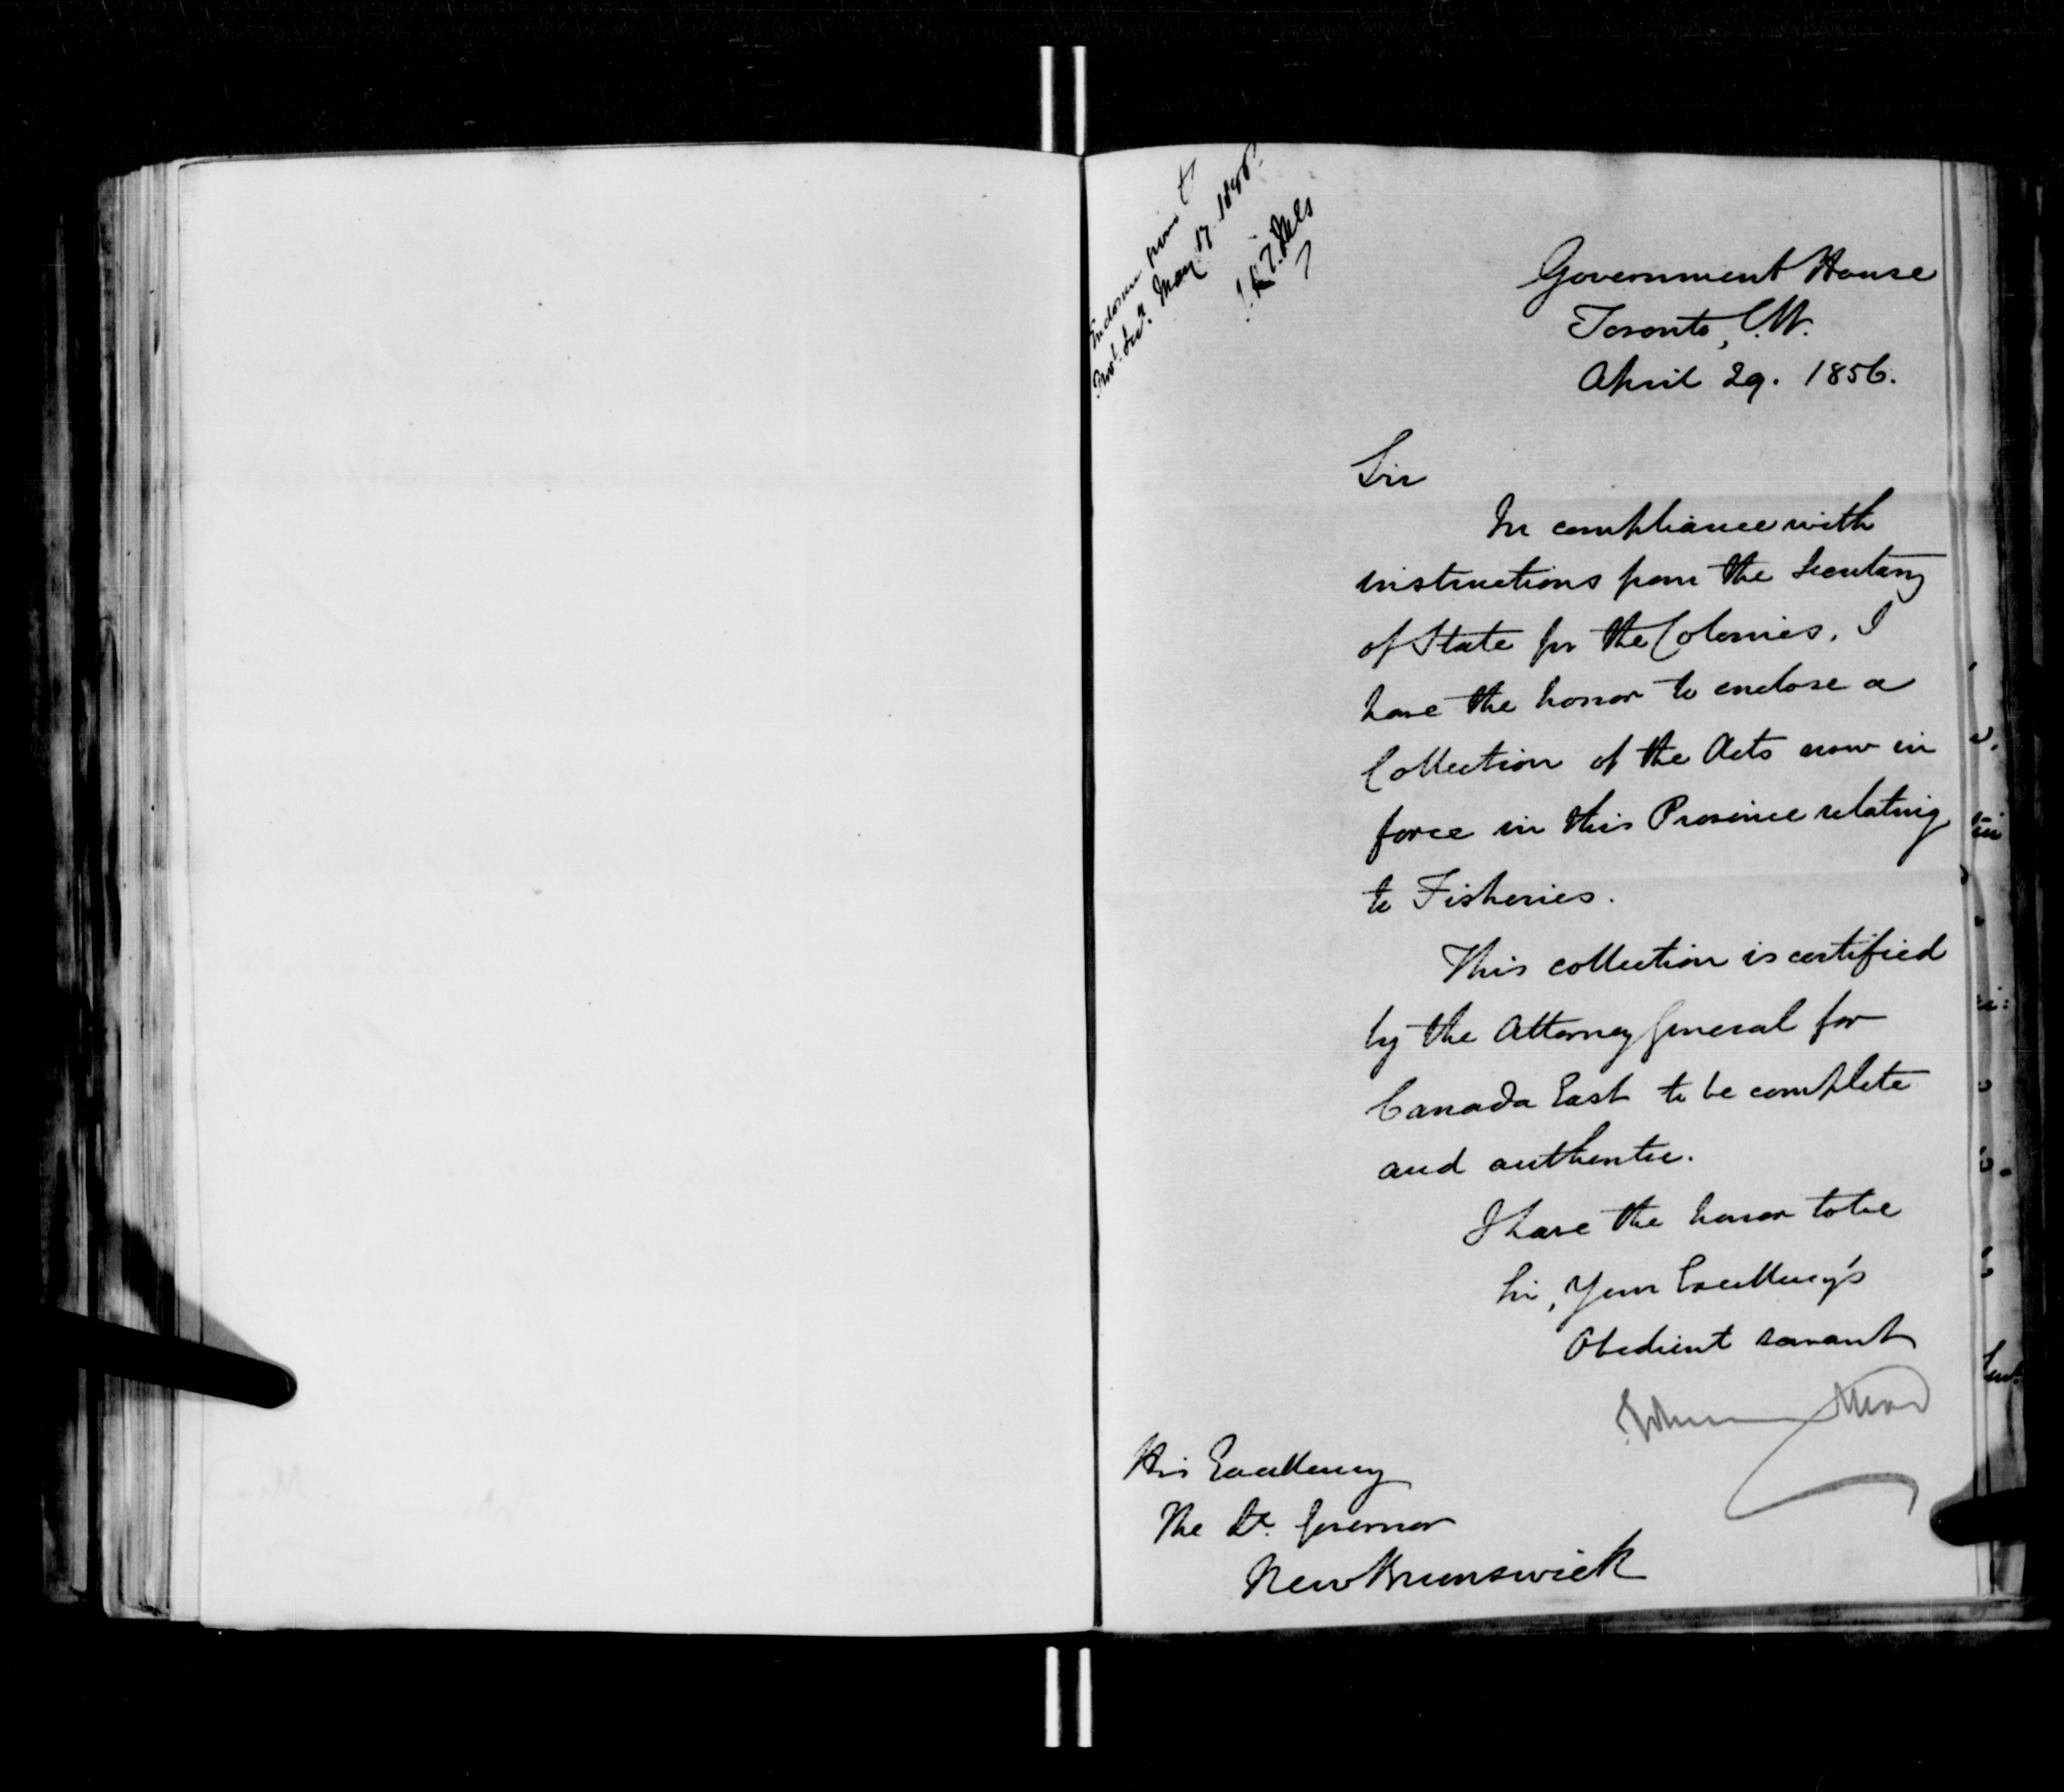 Enclosure given to
Prov.l Sec.y May 17. 1856.
Government House
Toronto, C.W.
April 29. 1856.
Sir
In compliance with
instructions from the Secretary
of State for the Colonies, I
have the honor to enclose a
Collection of the Acts now in
force in this Province relating
to Fisheries.
This collection is certified
by the Attorney General for
Canada East to be complete
and authentic.
I have the honor to be
Sir, Your Excellency's
Obedient servant
Edmund Head
His Excellency
The Lt. Governor
New Brunswick